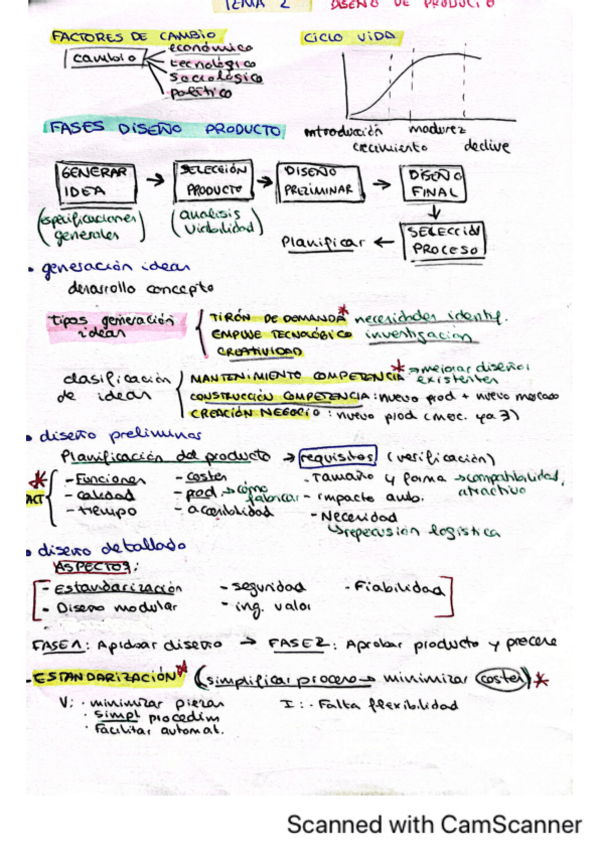 TEMA 2 DISEÑO DE PRODUCTO
FACTORES DE CAMBIO
CICLO VIDA
cambio
económico
tecnológico
sociológico
político
introducción
crecimiento
madurez
declive
FASES DISEÑO PRODUCTO
GENERAR IDEA → SELECCIÓN PRODUCTO → DISEÑO PRELIMINAR → DISEÑO FINAL
(especificaciones generales)
(análisis viabilidad)
Planificar ← SELECCIÓN PROCESO
• generación ideas
desarrollo concepto
tipos generación ideas
TIRÓN DE DEMANDA* necesidades identif.
EMPUJE TECNOLÓGICO investigación
CREATIVIDAD
clasificación de ideas
MANTENIMIENTO COMPETENCIA* → mejorar diseños existentes
CONSTRUCCIÓN COMPETENCIA: nuevo prod + nuevo mercado
CREACIÓN NEGOCIO: nuevo prod (mec. ya 3)
• diseño preliminar
Planificación del producto → requisitos (verificación)
* ACT
- Funciones
- calidad
- tiempo
- costes
- prod → cómo fabricar
- accesibilidad
- Tamaño y forma → compatibilidad, atractivo
- impacto amb.
- Necesidad
↳ repercusión logística
• diseño detallado
ASPECTOS:
- Estandarización - seguridad - Fiabilidad
- Diseño modular - ing. valor
FASE 1: Aprobar diseño → FASE 2: Aprobar producto y
- ESTANDARIZACIÓN* (simplificar proceso → minimizar costes) *
V: · minimizar piezas
· simpl procedim
· Facilitar automat.
I: · Falta flexibilidad
Scanned with CamScanner